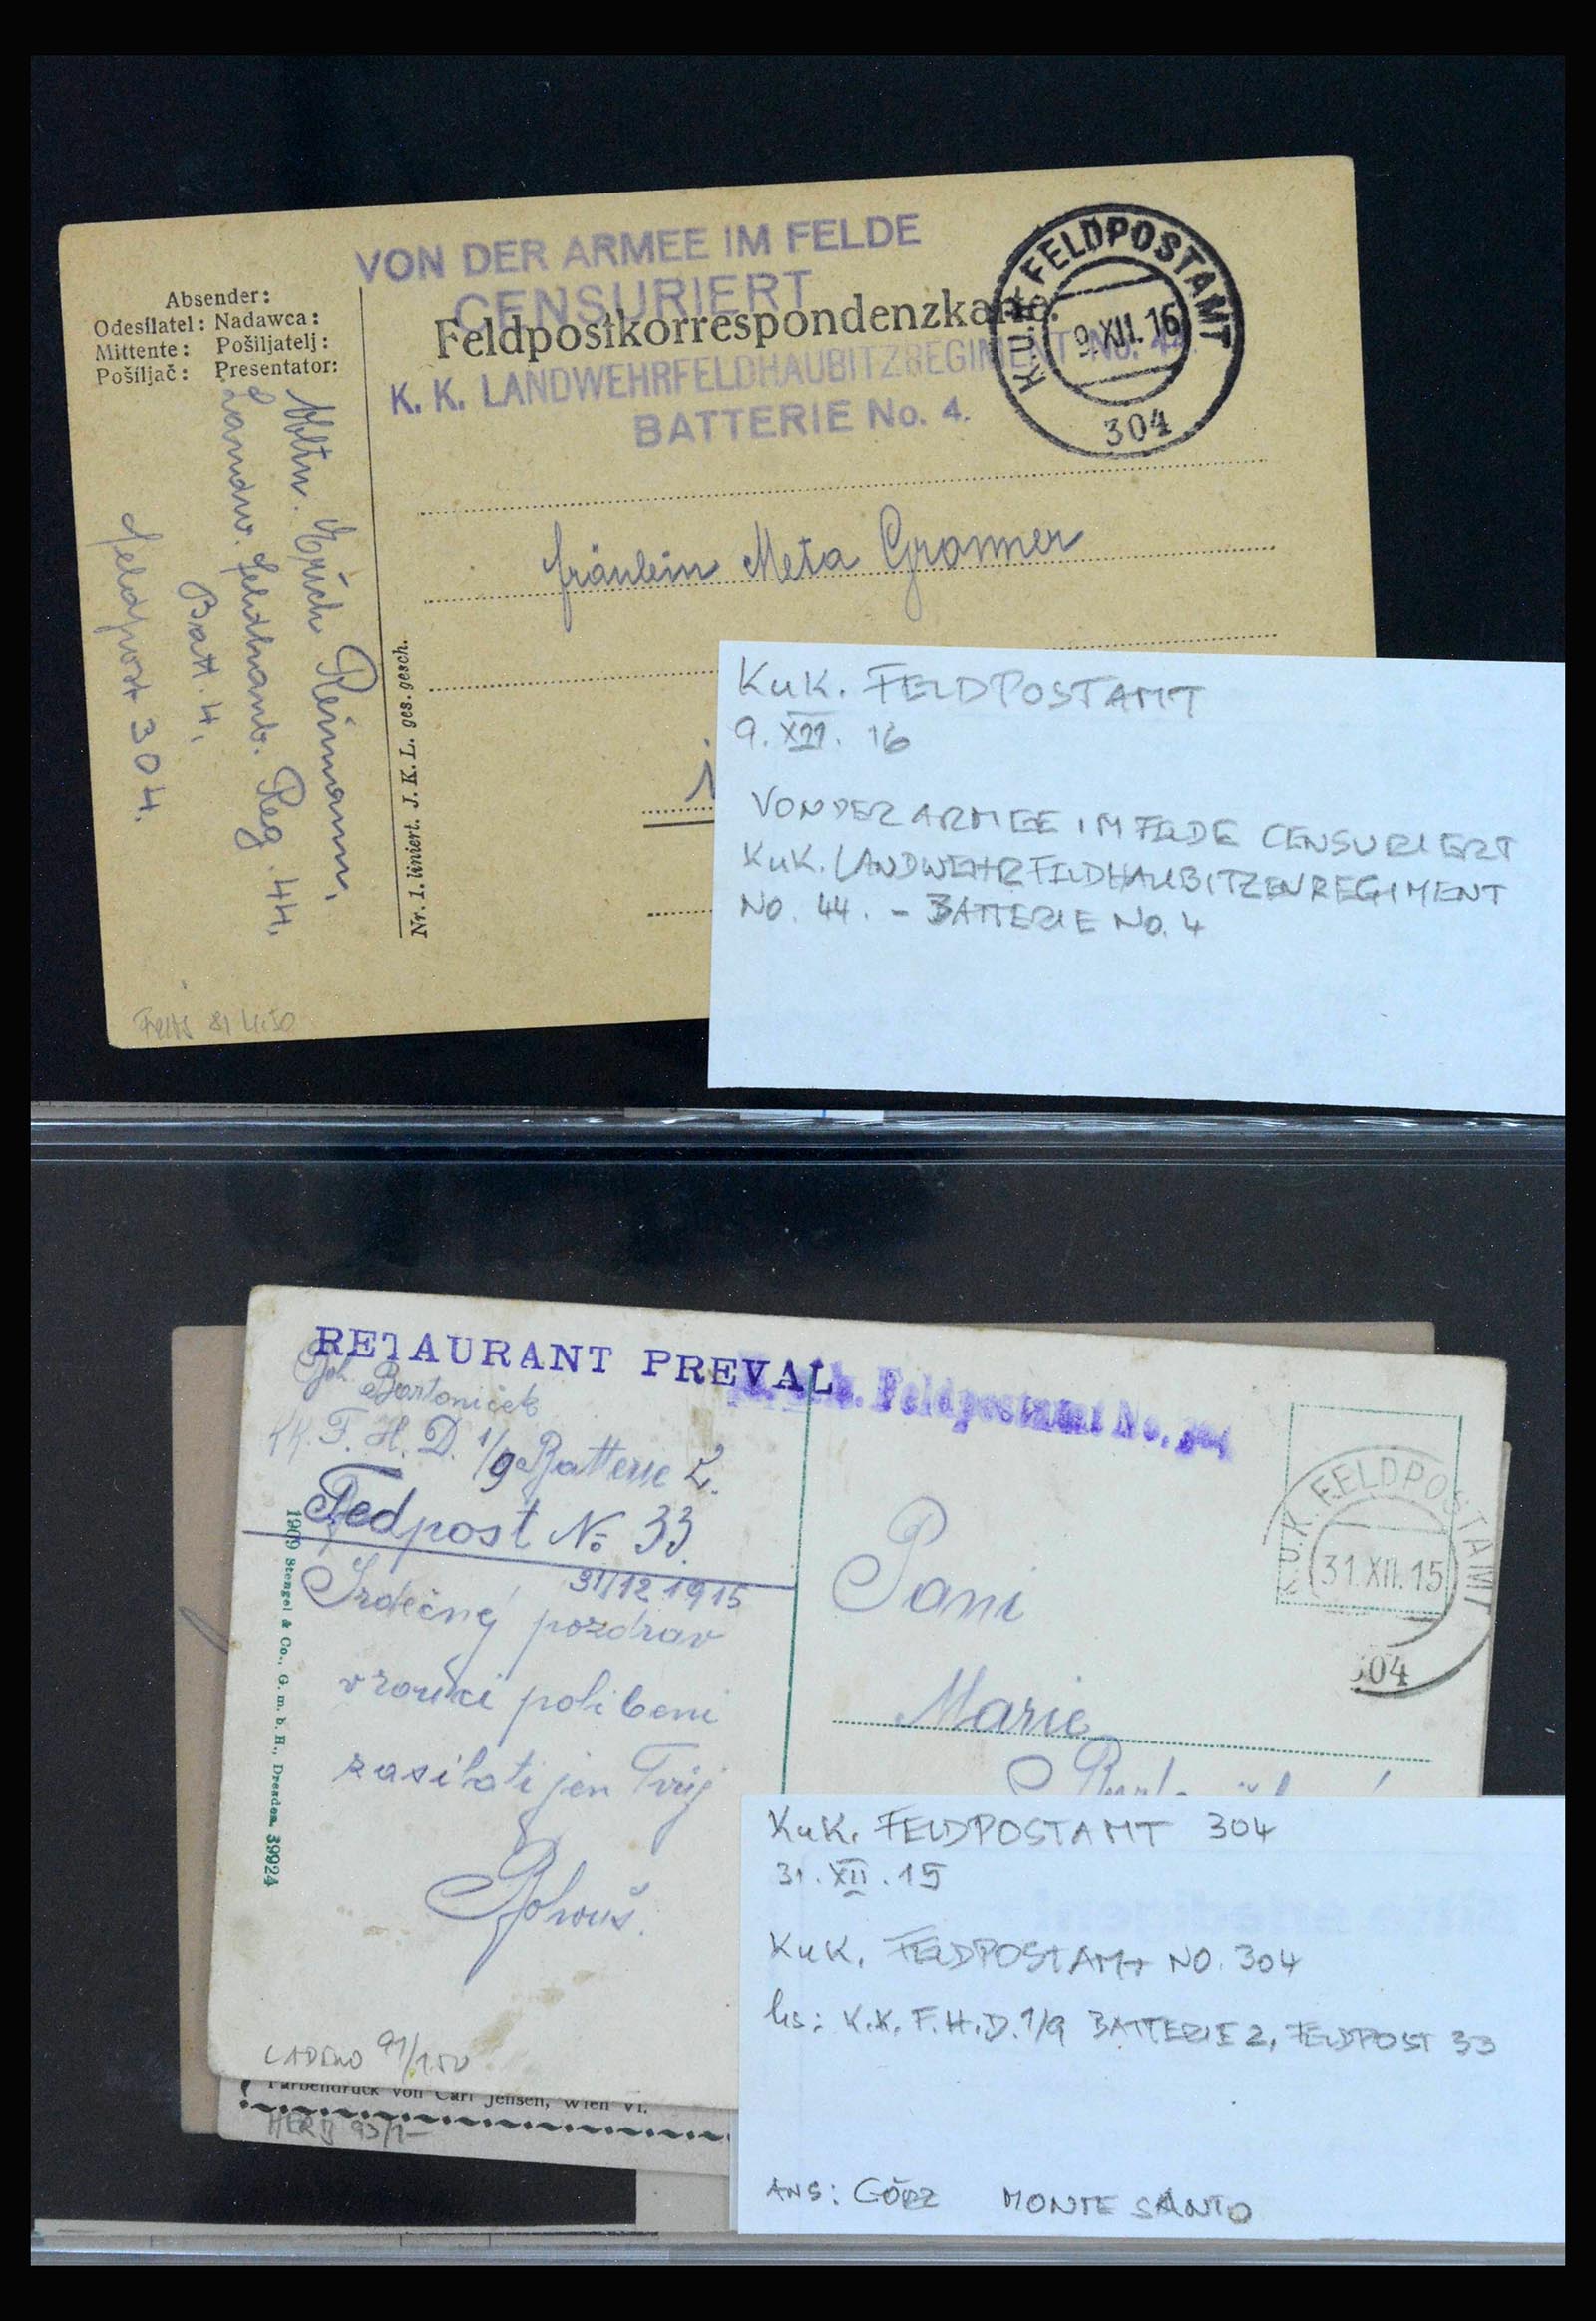 VON DER ARMEE IM FELDE
CENSURIERT
Feldpostkorrespondenzkarte.
K. K. LANDWEHRFELDHAUBITZREGIMENT No. 44.
BATTERIE No. 4.
K.u.K. FELDPOSTAMT
9.XII.16
304
Absender:
Odesílatel: Nadawca:
Mittente: Pošiljatelj:
Pošiljač: Presentator:
Erich Reimann,
Landw. Feldhaub. Reg. 44.
Batt. 4.
Feldpost 304.
Nr. 1. liniert. J. K. L. ges. gesch.
Fräulein Meta Gronner
KuK. FELDPOSTAMT
9. XII. 16
VON DER ARMEE IM FELDE CENSURIERT
KuK. LANDWEHRFELDHAUBITZENREGIMENT
No. 44. - BATTERIE No. 4
RETAURANT PREVAL
K. u. k. Feldpostamt No. 304
Bartoniček
KK. F. H. D. 1/9 Batterie 2.
Fedpost No 33.
31/12 1915
Srdečný pozdrav
vroucí políbení
zasílati jen Tvůj
Bohouš.
1909 Stengel & Co., G. m. b. H., Dresden 39924
K.U.K. FELDPOSTAMT
31.XII.15
304
Paní
Marie
KuK. FELDPOSTAMT 304
31. XII. 15
KuK. FELDPOSTAMT NO. 304
hs: K.K. F.H.D. 1/9 BATTERIE 2, FELDPOST 33
ANS: GÖRZ MONTE SANTO
Farbendruck von Carl Jensen, Wien VI.
HERB 93/1-